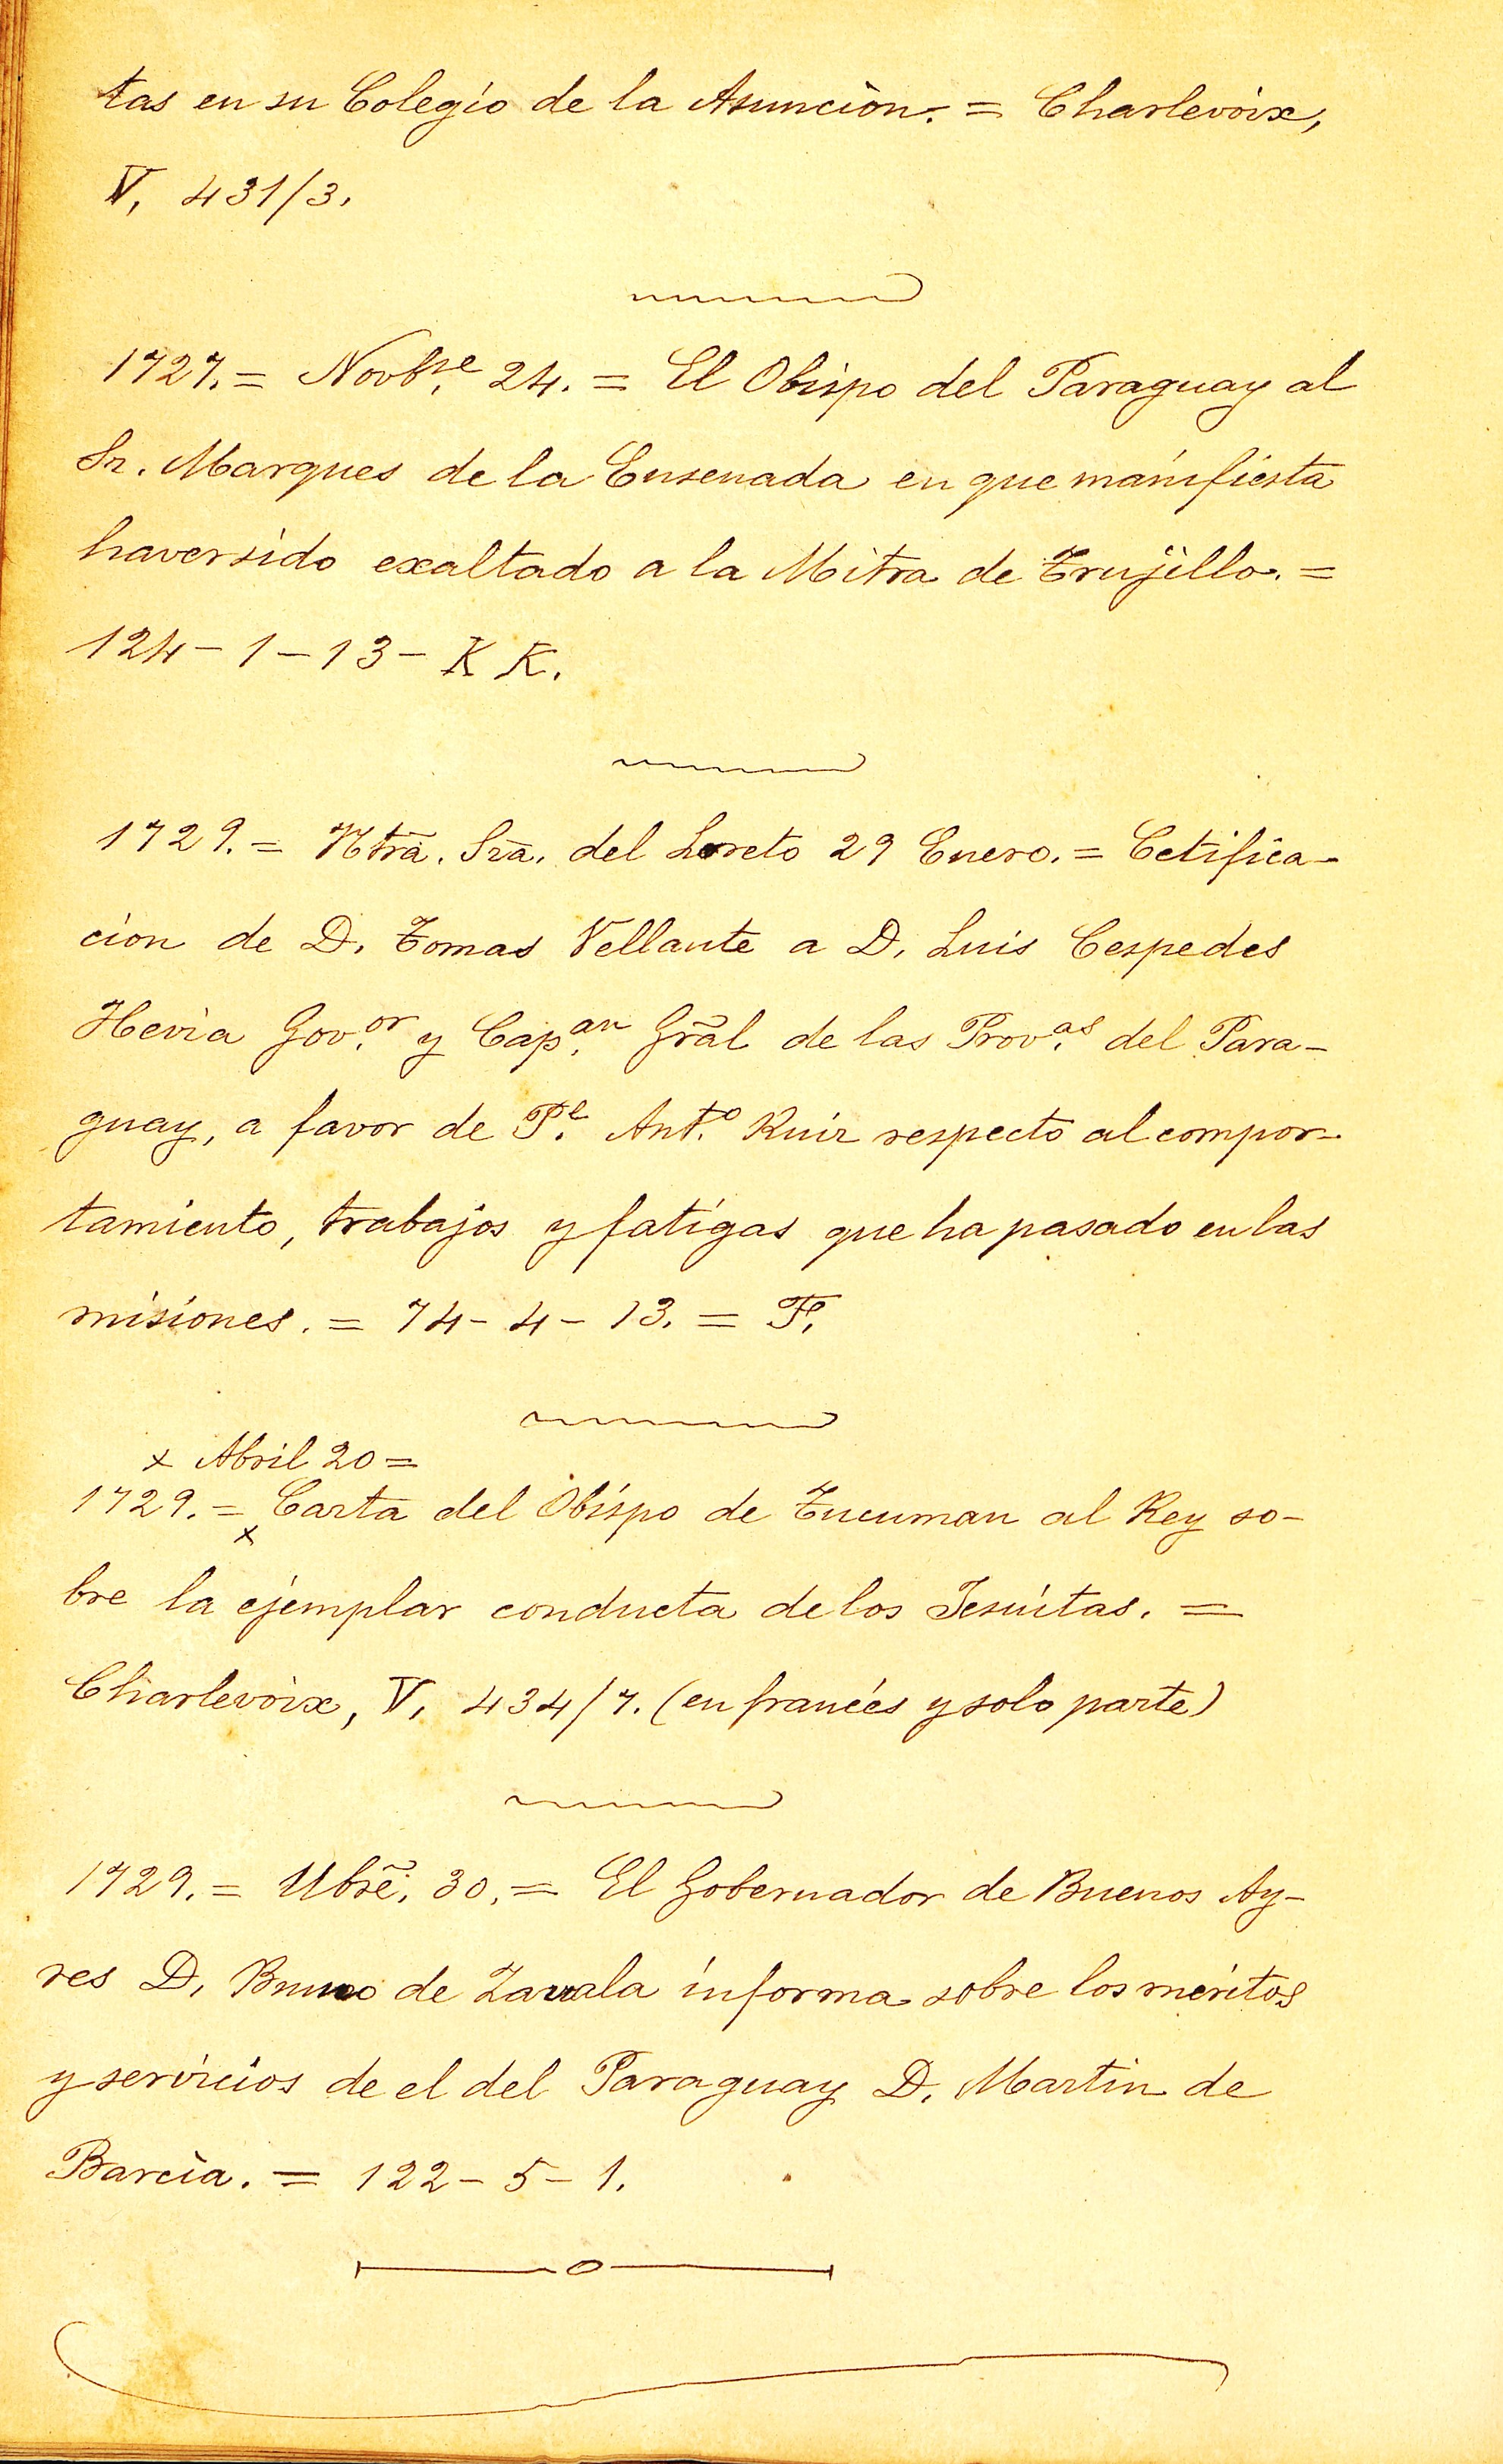 tas en su Colegio de la Asunción. = Charlevoix,
V, 431/3.
1727. = Novbre. 24. = El Obispo del Paraguay al
Sr. Marques de la Ensenada en que manifiesta
haver sido exaltado a la Mitra de Trujillo. =
124-1-13- K K.
1729. = Ntrã. Srã. del Loreto 29 Enero. = Cetifica-
cion de D. Tomas Vellante a D. Luis Cespedes
Hevia Gov.or y Cap.an Grãl de las Prov.as del Para-
guay, a favor de P.e Ant.o Ruiz respecto al compor-
tamiento, trabajos y fatigas que ha pasado en las
misiones. = 74-4-13. = F.
x Abril 20 =
1729. = x Carta del Obispo de Tucuman al Rey so-
bre la ejemplar conducta de los Jesuitas. =
Charlevoix, V, 434/7. (en francés y solo parte)
1729. = Nbrẽ. 30. = El Gobernador de Buenos Ay-
res D. Bruno de Zavala informa sobre los méritos
y servicios de el del Paraguay D. Martin de
Barcia. = 122-5-1.